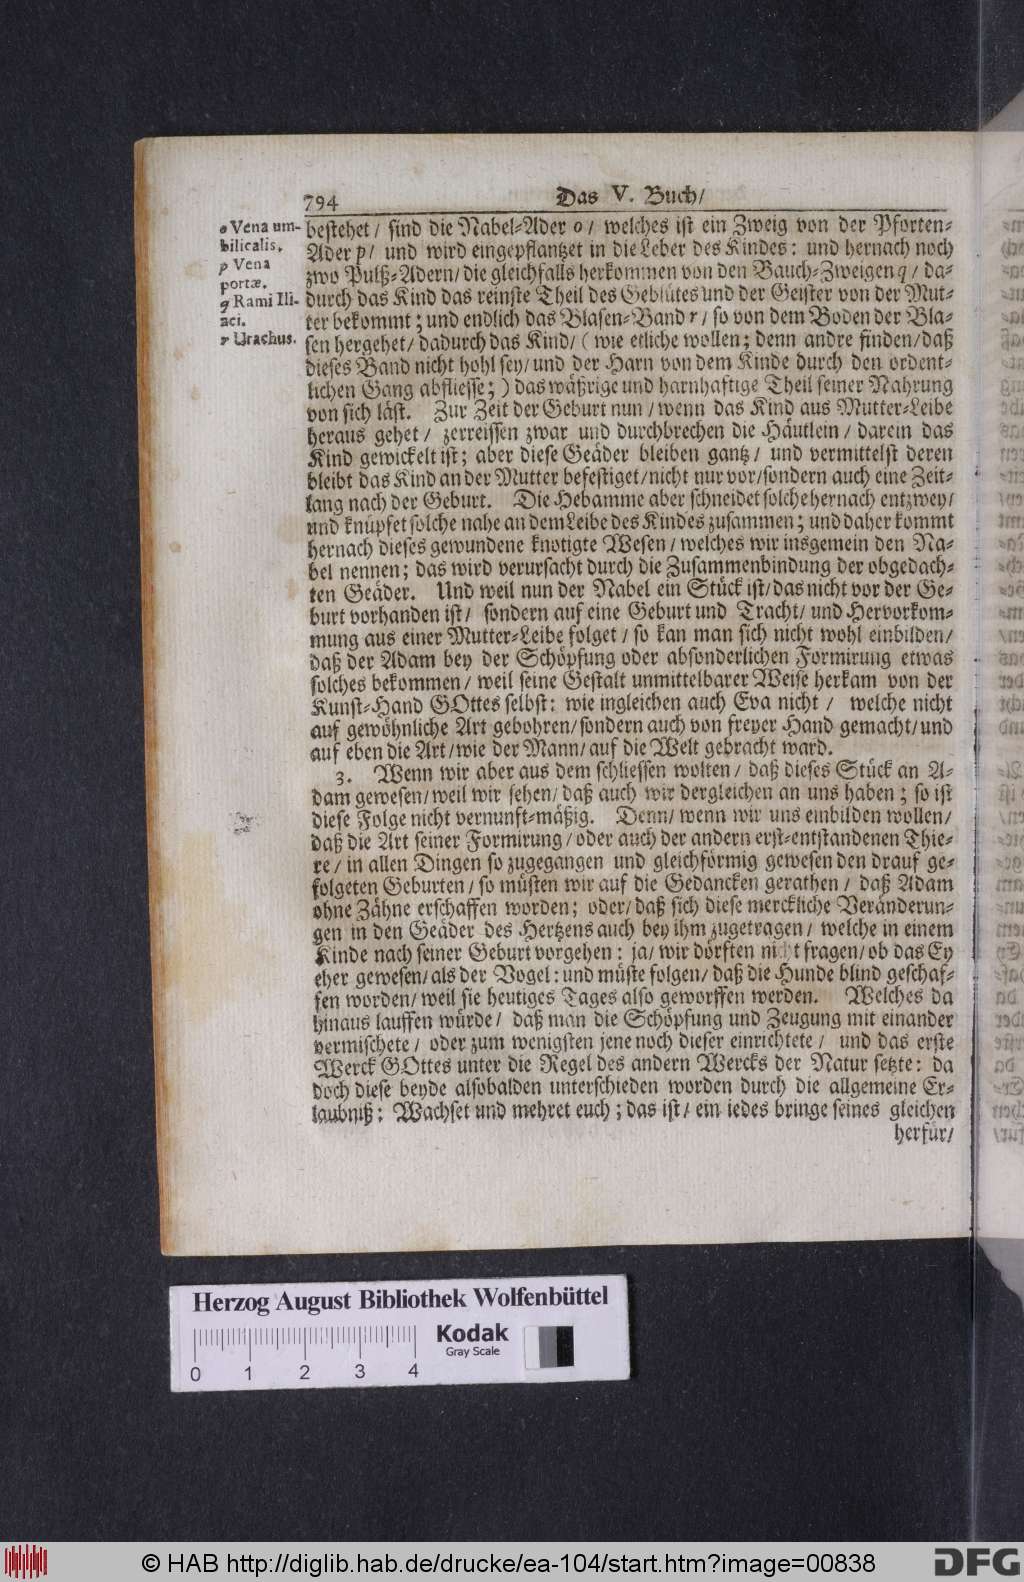 794 Das V. Buch/
o Vena um-
bilicalis.
p Vena
portæ.
q Rami Ili-
aci.
r Urachus.
bestehet/ sind die Nabel-Ader o/ welches ist ein Zweig von der Pforten-
Ader p/ und wird eingepflantzet in die Leber des Kindes: und hernach noch
zwo Pulß-Adern/ die gleichfalls herkommen von den Bauch-Zweigen q/ da-
durch das Kind das reinste Theil des Geblütes und der Geister von der Mut-
ter bekommt; und endlich das Blasen-Band r/ so von dem Boden der Bla-
sen hergehet/ dadurch das Kind/ (wie etliche wollen; denn andre finden/ daß
dieses Band nicht hohl sey/ und der Harn von dem Kinde durch den ordent-
lichen Gang abfliesse;) das wäßrige und harnhaftige Theil seiner Nahrung
von sich läst. Zur Zeit der Geburt nun/ wenn das Kind aus Mutter-Leibe
heraus gehet/ zerreissen zwar und durchbrechen die Häutlein/ darein das
Kind gewickelt ist; aber diese Geäder bleiben gantz/ und vermittelst deren
bleibt das Kind an der Mutter befestiget/ nicht nur vor/ sondern auch eine Zeit-
lang nach der Geburt. Die Hebamme aber schneidet solche hernach entzwey/
und knüpfet solche nahe an dem Leibe des Kindes zusammen; und daher kommt
hernach dieses gewundene knotigte Wesen/ welches wir insgemein den Na-
bel nennen; das wird verursacht durch die Zusammenbindung der obgedach-
ten Geäder. Und weil nun der Nabel ein Stück ist/ das nicht vor der Ge-
burt vorhanden ist/ sondern auf eine Geburt und Tracht/ und Hervorkom-
mung aus einer Mutter-Leibe folget/ so kan man sich nicht wohl einbilden/
daß der Adam bey der Schöpfung oder absonderlichen Formirung etwas
solches bekommen/ weil seine Gestalt unmittelbarer Weise herkam von der
Kunst-Hand GOttes selbst: wie ingleichen auch Eva nicht/ welche nicht
auf gewöhnliche Art gebohren/ sondern auch von freyer Hand gemacht/ und
auf eben die Art/ wie der Mann/ auf die Welt gebracht ward.
3. Wenn wir aber aus dem schliessen wolten/ daß dieses Stück an A-
dam gewesen/ weil wir sehen/ daß auch wir dergleichen an uns haben; so ist
diese Folge nicht vernunft-mäßig. Denn/ wenn wir uns einbilden wollen/
daß die Art seiner Formirung/ oder auch der andern erst-entstandenen Thie-
re/ in allen Dingen so zugegangen und gleichförmig gewesen den drauf ge-
folgeten Geburten/ so müsten wir auf die Gedancken gerathen/ daß Adam
ohne Zähne erschaffen worden; oder/ daß sich diese merckliche Veränderun-
gen in den Geäder des Hertzens auch bey ihm zugetragen/ welche in einem
Kinde nach seiner Geburt vorgehen: ja/ wir dörften nicht fragen/ ob das Ey
eher gewesen/ als der Vogel: und müste folgen/ daß die Hunde blind geschaf-
fen worden/ weil sie heutiges Tages also geworffen werden. Welches da
hinaus lauffen würde/ daß man die Schöpfung und Zeugung mit einander
vermischete/ oder zum wenigsten jene noch dieser einrichtete/ und das erste
Werck GOttes unter die Regel des andern Wercks der Natur setzte: da
doch diese beyde alsobalden unterschieden worden durch die allgemeine Er-
laubniß: Wachset und mehret euch; das ist/ ein iedes bringe seines gleichen
herfür/
Herzog August Bibliothek Wolfenbüttel
Kodak
Gray Scale
0 1 2 3 4
© HAB http://diglib.hab.de/drucke/ea-104/start.htm?image=00838
DFG